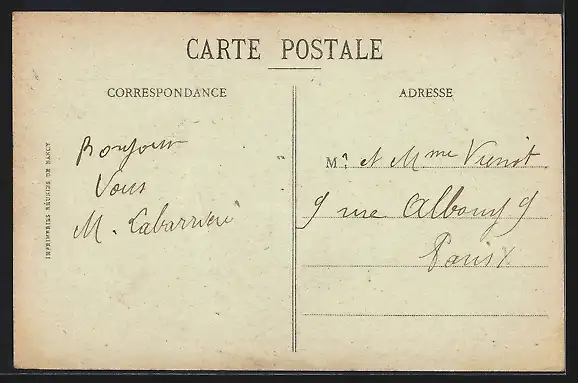 CARTE POSTALE
CORRESPONDANCE
ADRESSE
IMPRIMERIES RÉUNIES DE NANCY
Bonjour
Vous
M. Labarrière
Mr et Mme Vienot
9 rue Albouy 9
Paris X